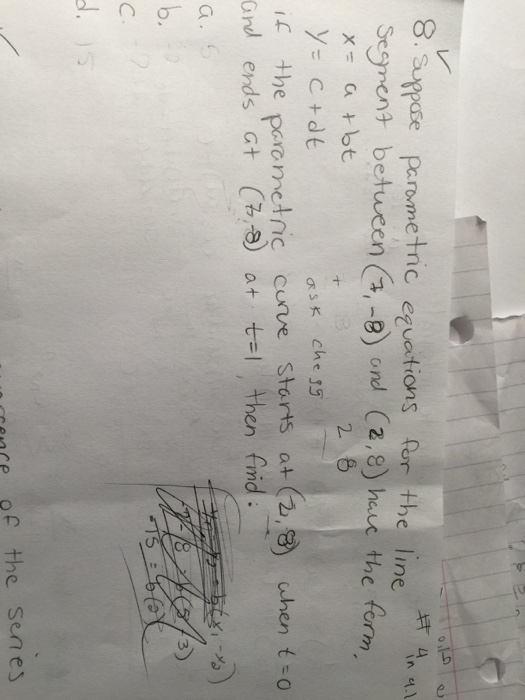 8. Suppose parametric equations for the line
segment between (7,-8) and (2,8) have the form.
x = a + bt
y = c + dt
ask chegg
if the parametric curve starts at (2,8) when t=0
and ends at (7,-8) at t=1, then find:
a.
b.
c.
d. 15
# 4
in 9.1
of the series